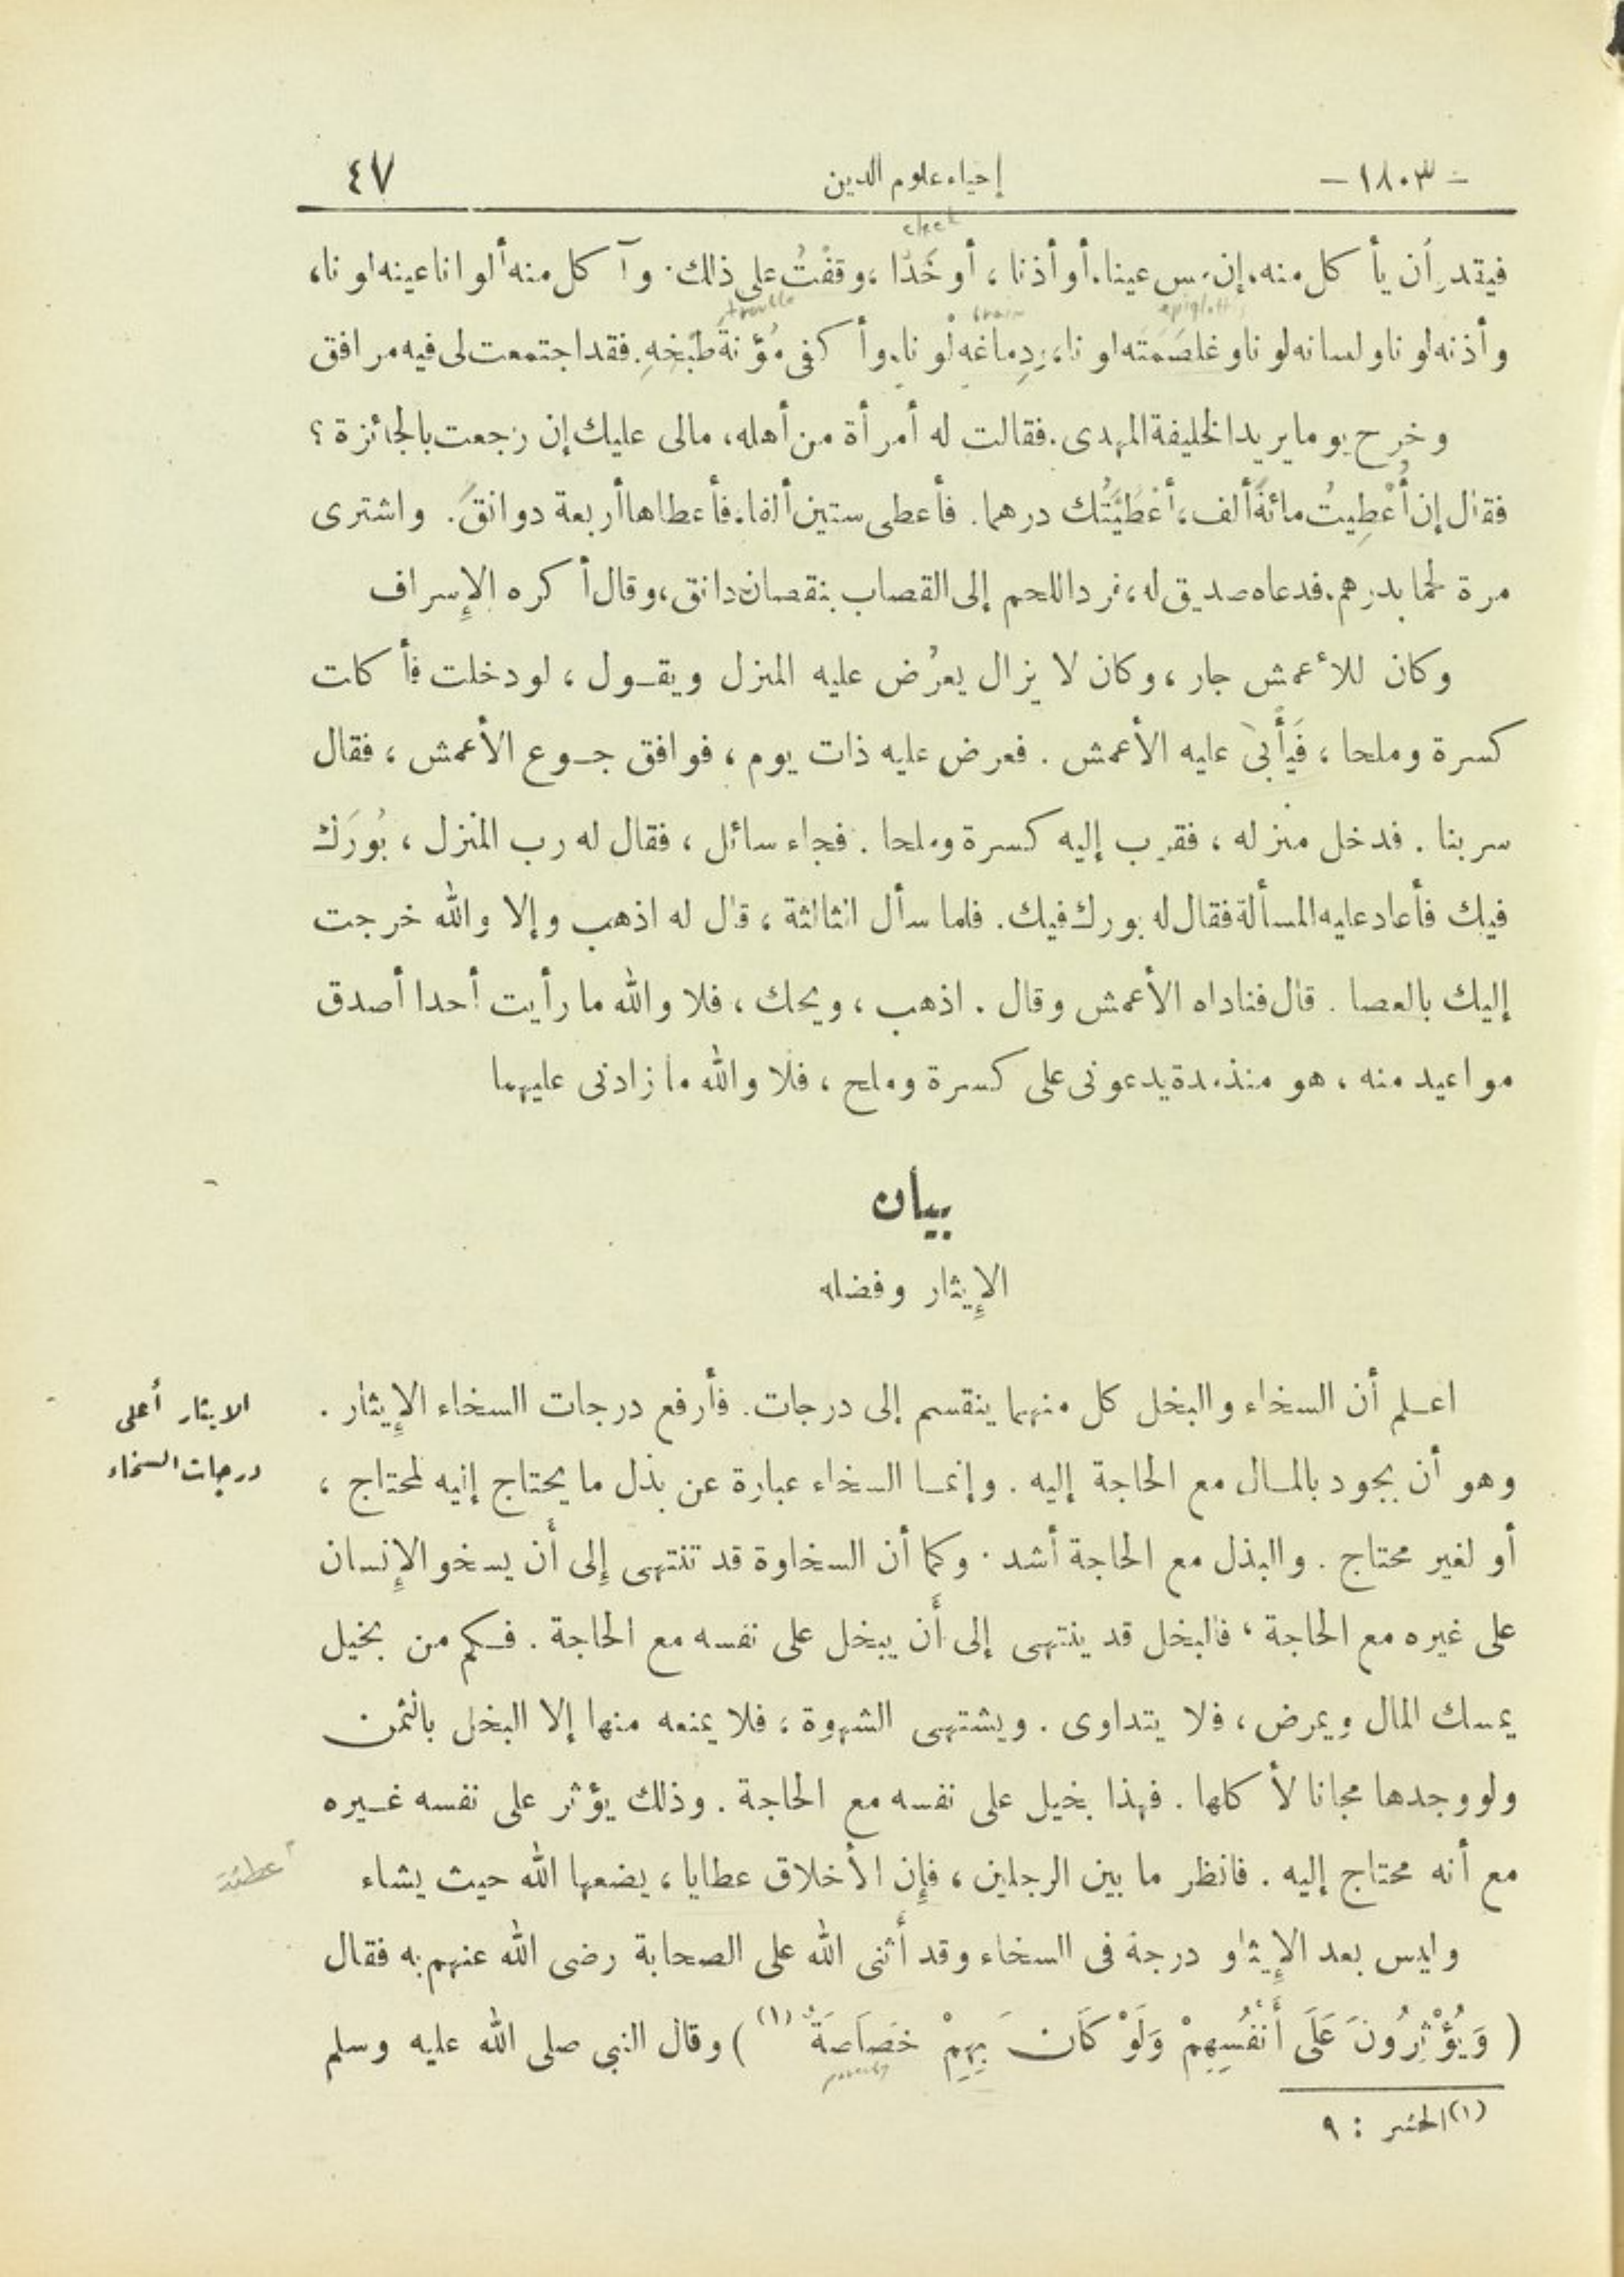 - ١٨٠٣ - إحياء علوم الدين ٤٧
cheek
فيقدر أن يأكل منه. إن مس عينا. أو أذنا ، أو خَدًّا ، وقفْتُ على ذلك . وآكل منه ألوانا عينه لونا ،
trouble brain epiglottis
وأذنه لونا ولسانه لونا وغلصَمَتَه لونا ، ودِماغَه لْونا . وأكفى مُؤنةَ طَبْخِهِ . فقد اجتمعت لى فيه مرافق
وخرج يوما يريد الخليفة المهدى . فقالت له أمرأة من أهله ، مالى عليك إن رجعت بالجائزة ؟
فقال إن أُعْطِيتُ مائةَ ألف ، أعْطَيْتُك درهما . فأعطى ستين ألفا . فأعطاها أربعة دوانقَ . واشترى
مرة لحما بدرهم . فدعاه صديق له ، فرد اللحم إلى القصاب بنقصان دانق ، وقال أكره الإسراف
وكان للأعمش جار ، وكان لا يزال يعرُض عليه المنزل ويقـول ، لو دخلت فأكلت
كسرة وملحا ، فَيَأْبىَ عليه الأعمش . فعرض عليه ذات يوم ، فوافق جـوع الأعمش ، فقال
سر بنا . فدخل منزله ، فقرب إليه كسرة وملحا . فجاء سائل ، فقال له رب المنزل ، بُورَك
فيك فأعاد عليه المسألة فقال له بورك فيك . فلما سأل الثالثة ، قال له اذهب وإلا والله خرجت
إليك بالعصا . قال فناداه الأعمش وقال . اذهب ، ويحك ، فلا والله ما رأيت أحدا أصدق
مواعيد منه ، هو منذ مدة يدعونى على كسرة وملح ، فلا والله ما زادنى عليهما
بيان
الإيثار وفضله
اعـلم أن السخاء والبخل كل منهما ينقسم إلى درجات . فأرفع درجات السخاء الإيثار .
الايثار أعلى
درجات السخاء
وهو أن يجود بالمـال مع الحاجة إليه . وإنمـا السخاء عبارة عن بذل ما يحتاج إليه لمحتاج ،
أو لغير محتاج . والبذل مع الحاجة أشد . وكما أن السخاوة قد تنتهى إلى أن يسخو الإنسان
على غيره مع الحاجة ، فالبخل قد ينتهى إلى أن يبخل على نفسه مع الحاجة . فـكم من بخيل
يمسك المال ويمرض ، فلا يتداوى . ويشتهى الشهوة ، فلا يمنعه منها إلا البخل بالثمن
ولو وجدها مجانا لأكلها . فهذا بخيل على نفسه مع الحاجة . وذلك يؤثر على نفسه غـيره
مع أنه محتاج إليه . فانظر ما بين الرجلين ، فإن الأخلاق عطايا ، يضعها الله حيث يشاء
وليس بعد الإيثار درجة فى السخاء وقد أثنى الله على الصحابة رضى الله عنهم به فقال
( وَيُؤْثِرُونَ عَلَى أَنْفُسِهِمْ وَلَوْ كَانَ بِهِمْ خَصَاصَةٌ (١) ) وقال النبي صلى الله عليه وسلم
poverty
(١) الحشر : ٩